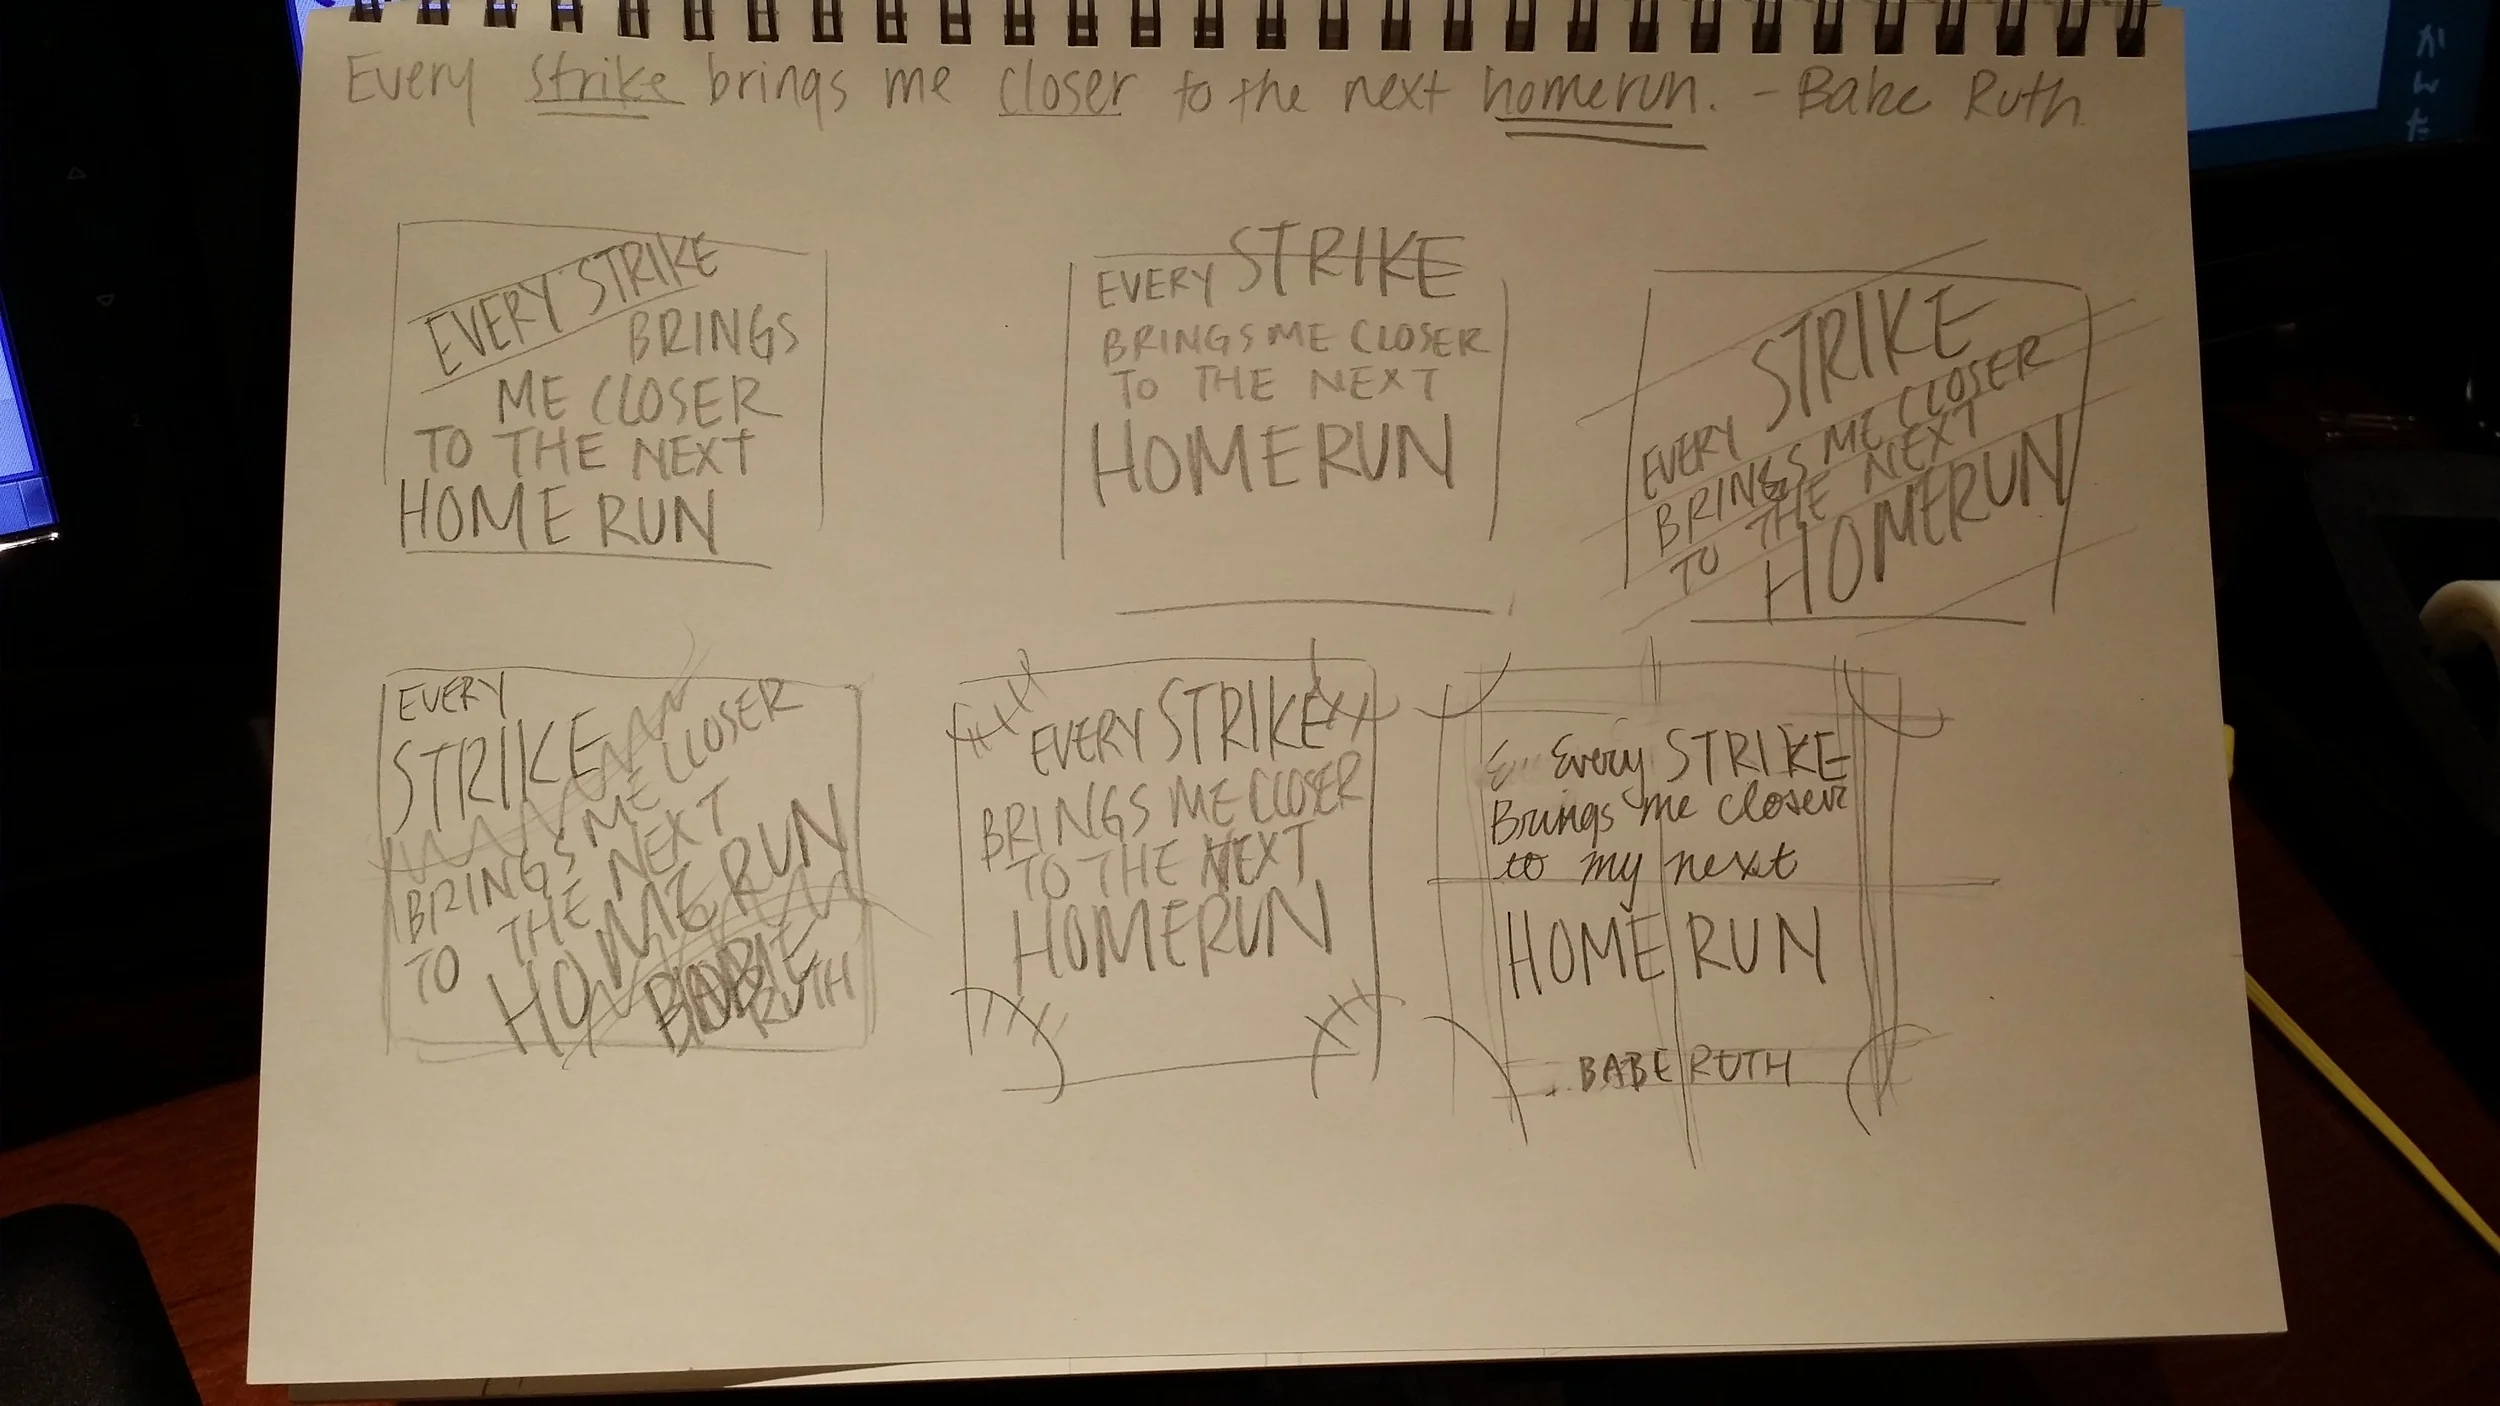 Every strike brings me closer to the next homerun. - Babe Ruth
EVERY STRIKE
BRINGS
ME CLOSER
TO THE NEXT
HOME RUN
EVERY STRIKE
BRINGS ME CLOSER
TO THE NEXT
HOMERUN
EVERY STRIKE
BRINGS ME CLOSER
TO THE NEXT
HOMERUN
EVERY
STRIKE
BRINGS ME CLOSER
TO THE NEXT
HOME RUN
BABE
RUTH
EVERY STRIKE
BRINGS ME CLOSER
TO THE NEXT
HOMERUN
E.. Every STRIKE
Brings me closer
to my next
HOME RUN
BABE RUTH
かんた